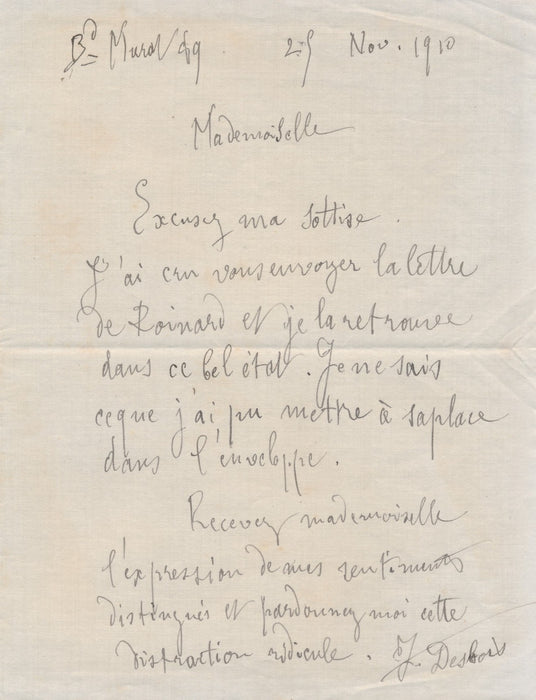 Bd Murat 89 25 Nov. 1910
Mademoiselle
Excusez ma sottise.
J'ai cru vous envoyer la lettre
de Roinard et je la retrouve
dans ce bel état. Je ne sais
ce que j'ai pu mettre à sa place
dans l'enveloppe.
Recevez mademoiselle
l'expression de mes sentiments
distingués et pardonnez moi cette
distraction ridicule. J. Desbois